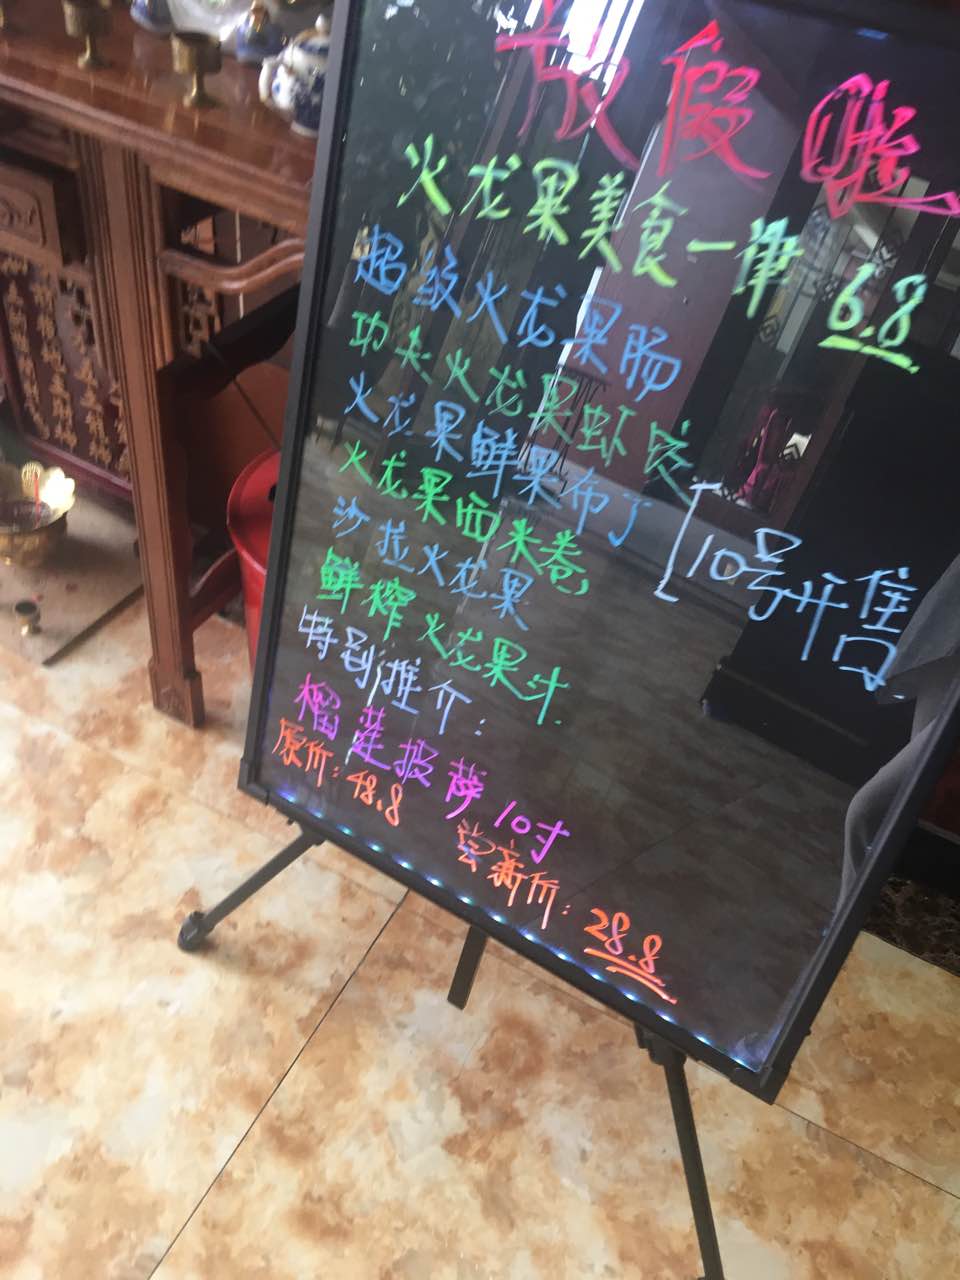 放假啦
火龙果美食一律 6.8
超级火龙果肠
功夫火龙果虾饺
火龙果鲜果布丁
[10号开售
火龙果西米卷
沙拉火龙果
鲜榨火龙果汁
特别推介:
榴莲披萨10寸
原价:48.8
尝新价:28.8